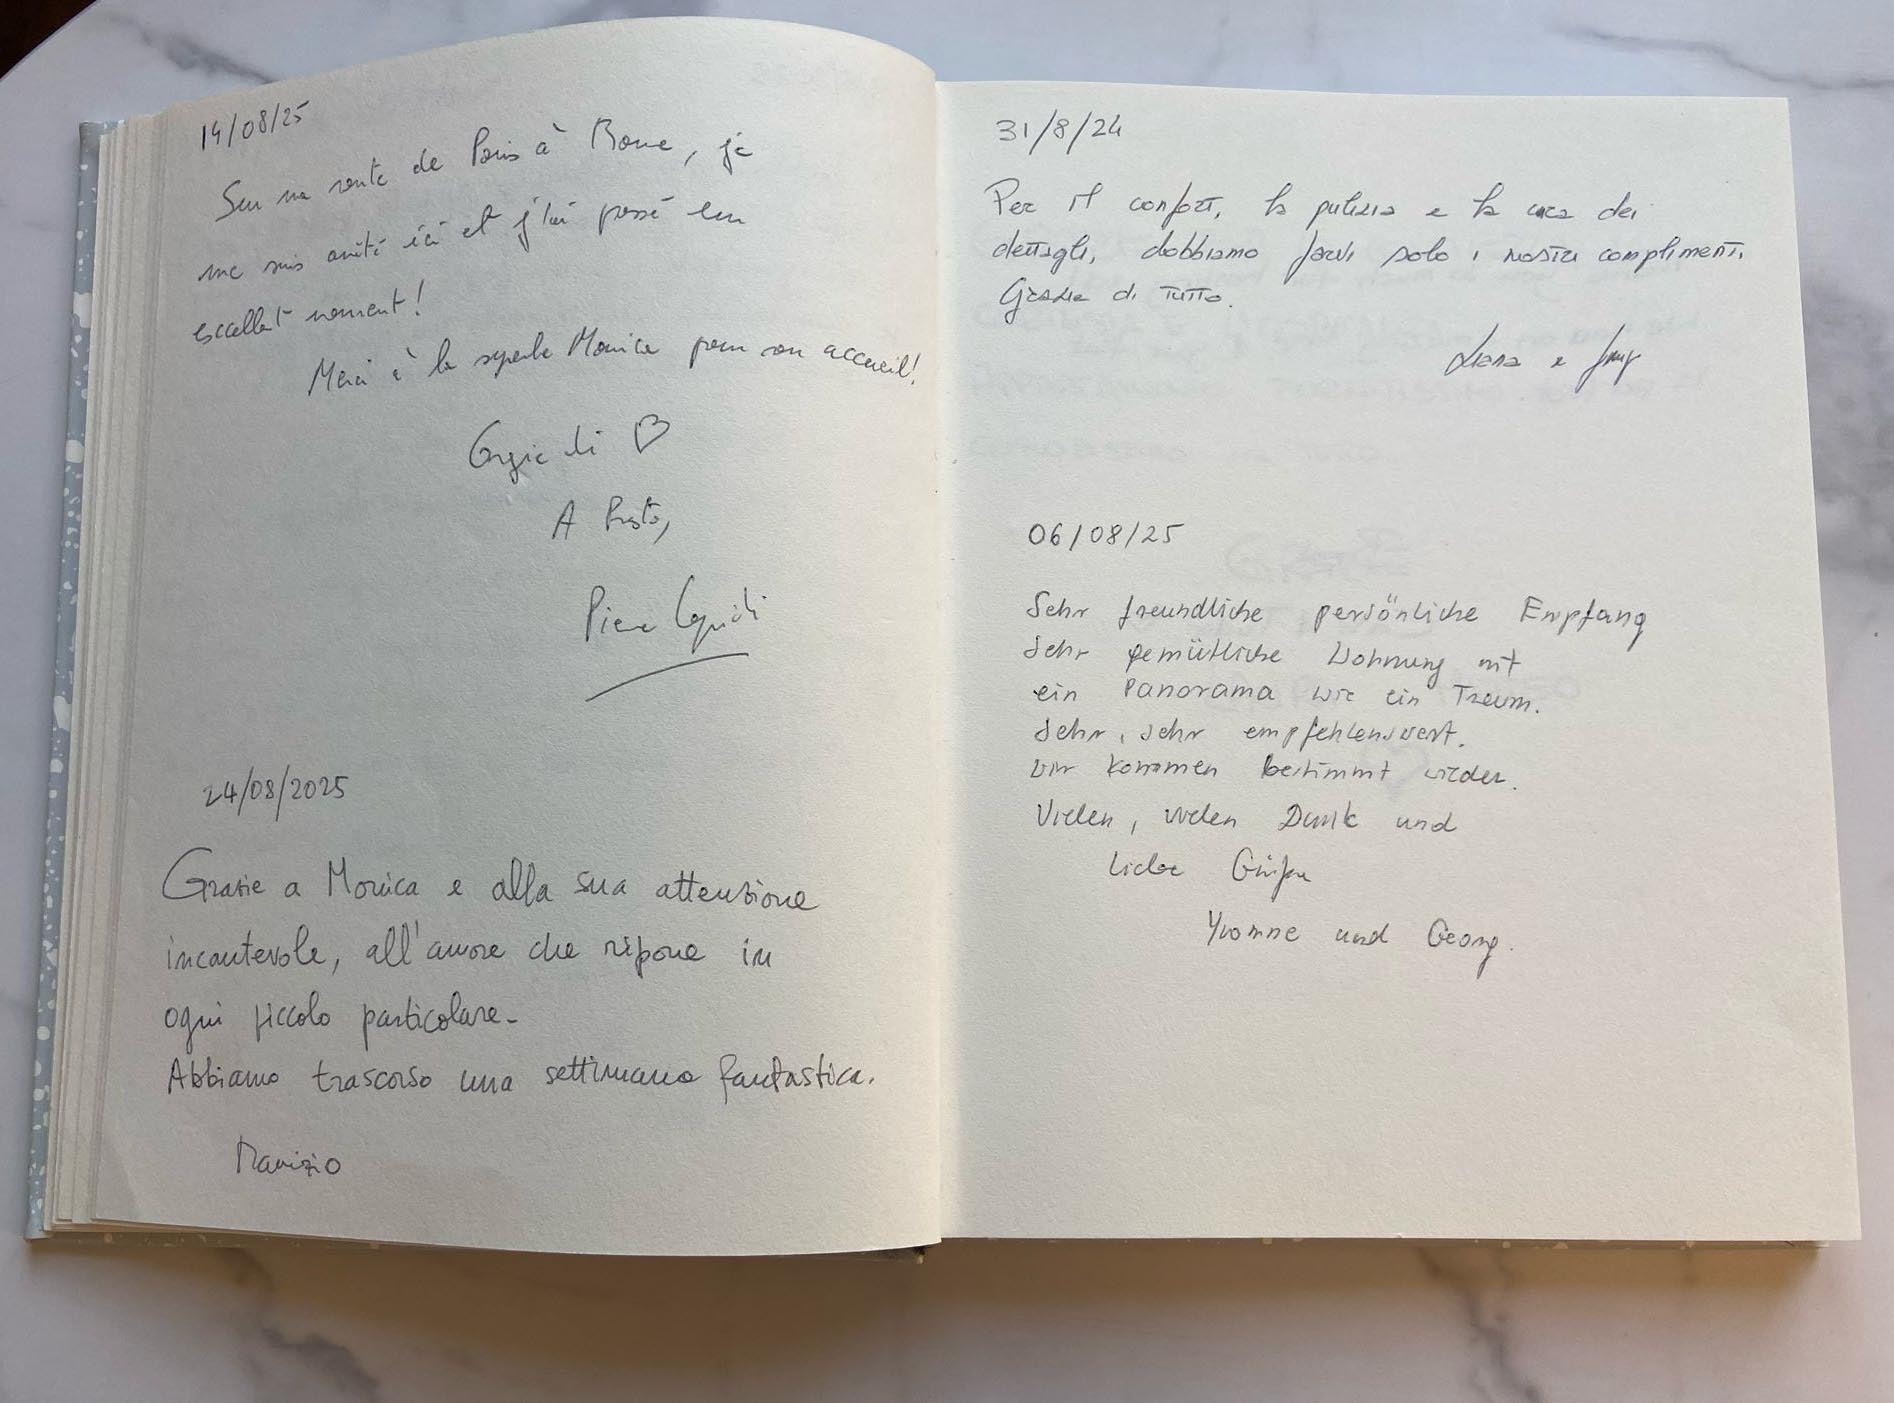 14/08/25
Sur ma route de Paris à Rome, je
me suis arrêté ici et j'ai passé un
excellent moment !
Merci à la superbe Monica pour son accueil !
Grazie di ♡
A Presto,
Pierre
24/08/2025
Grazie a Monica e alla sua attenzione
incantevole, all'amore che ripone in
ogni piccolo particolare-
Abbiamo trascorso una settimana fantastica.
Maurizio
31/8/24
Per il confort, la pulizia e la cura dei
dettagli, dobbiamo farvi solo i nostri complimenti.
Grazie di tutto.
e
06/08/25
Sehr freundliche persönliche Empfang
Sehr gemütliche Wohnung mit
ein Panorama wie ein Traum.
Sehr, sehr empfehlenswert.
Wir kommen bestimmt wieder.
Vielen, vielen Dank und
liebe Grüße
Yvonne und Georg.